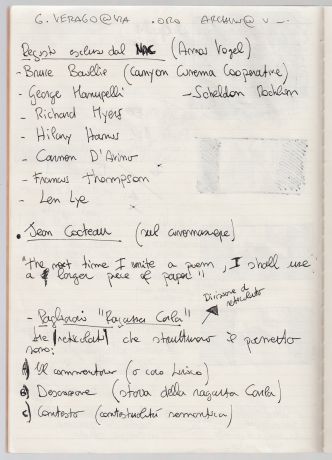 G. VERAGO@VIA . ORO ARCHIV@ V
Registi esclusi dal NAC (Amos Vogel)
- Bruce Baillie (Canyon Cinema Cooperative)
- George Manupelli - Scheldon Rochlin
- Richard Myers
- Hilary Harris
- Carmen D'Avino
- Francis Thompson
- Len Lye
. Jean Cocteau (sul cinemascope)
"The next time I write a poem, I shall use
a larger piece of paper"
Divisione di
reticolato
- Pagliarani "Ragazza Carla"
tre reticolati che strutturano il poemetto
sono:
A) Il commentour (o coro lirico)
B) Descrizione (storia della ragazza Carla)
C) Contesto (contestualità semantica)